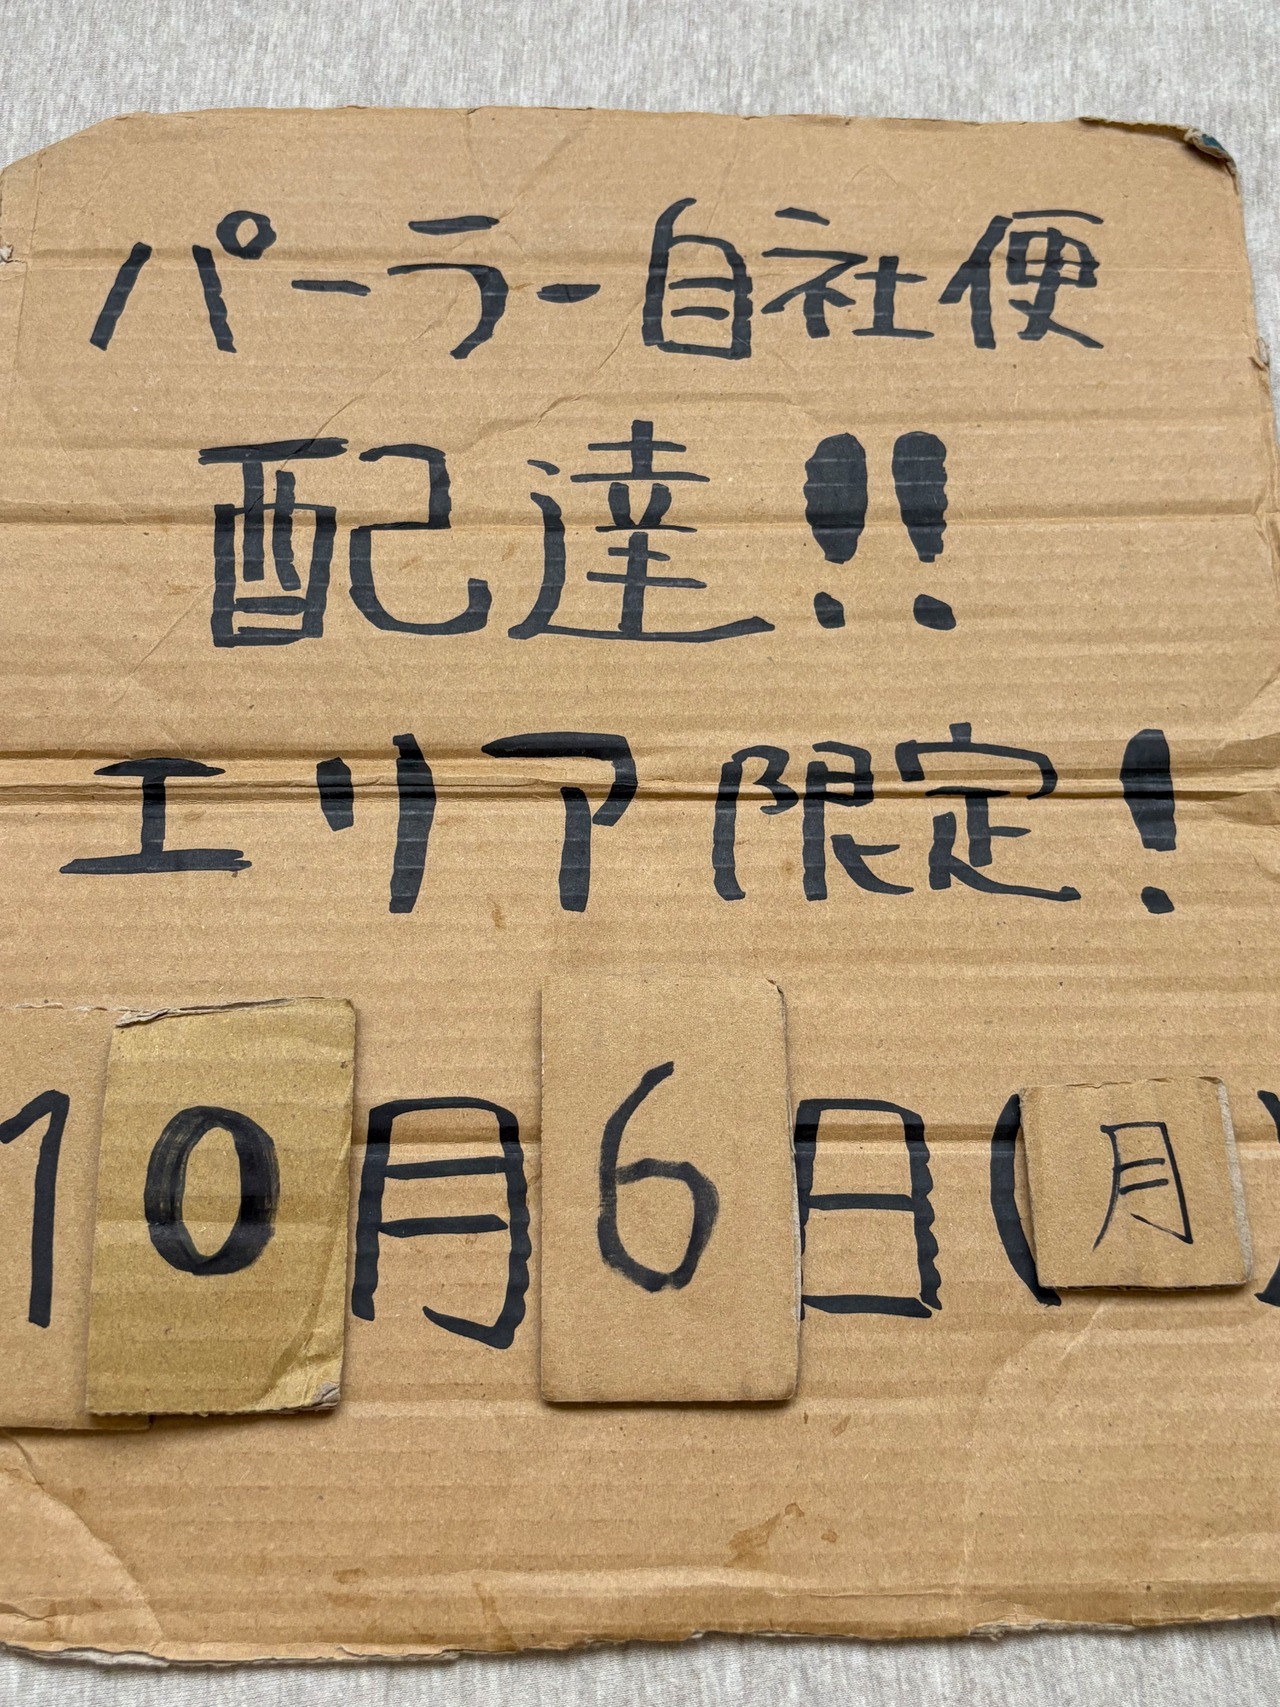 パーラー自社便
配達!!
エリア限定!
10月6日(月)